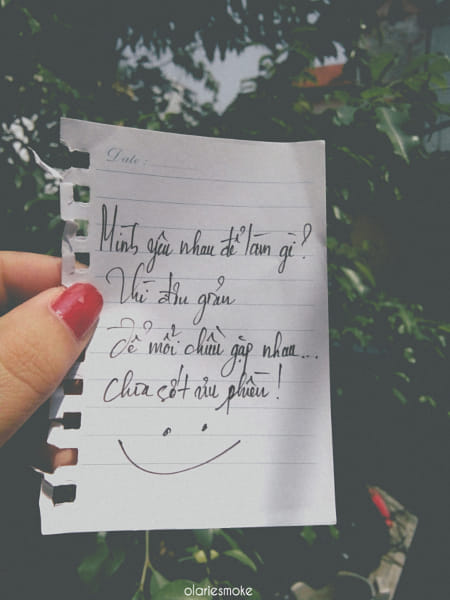 Date :
Mình yêu nhau để làm gì?
đơn giản
Để mỗi chiều gặp nhau...
chia sớt ưu phiền!
olariesmoke